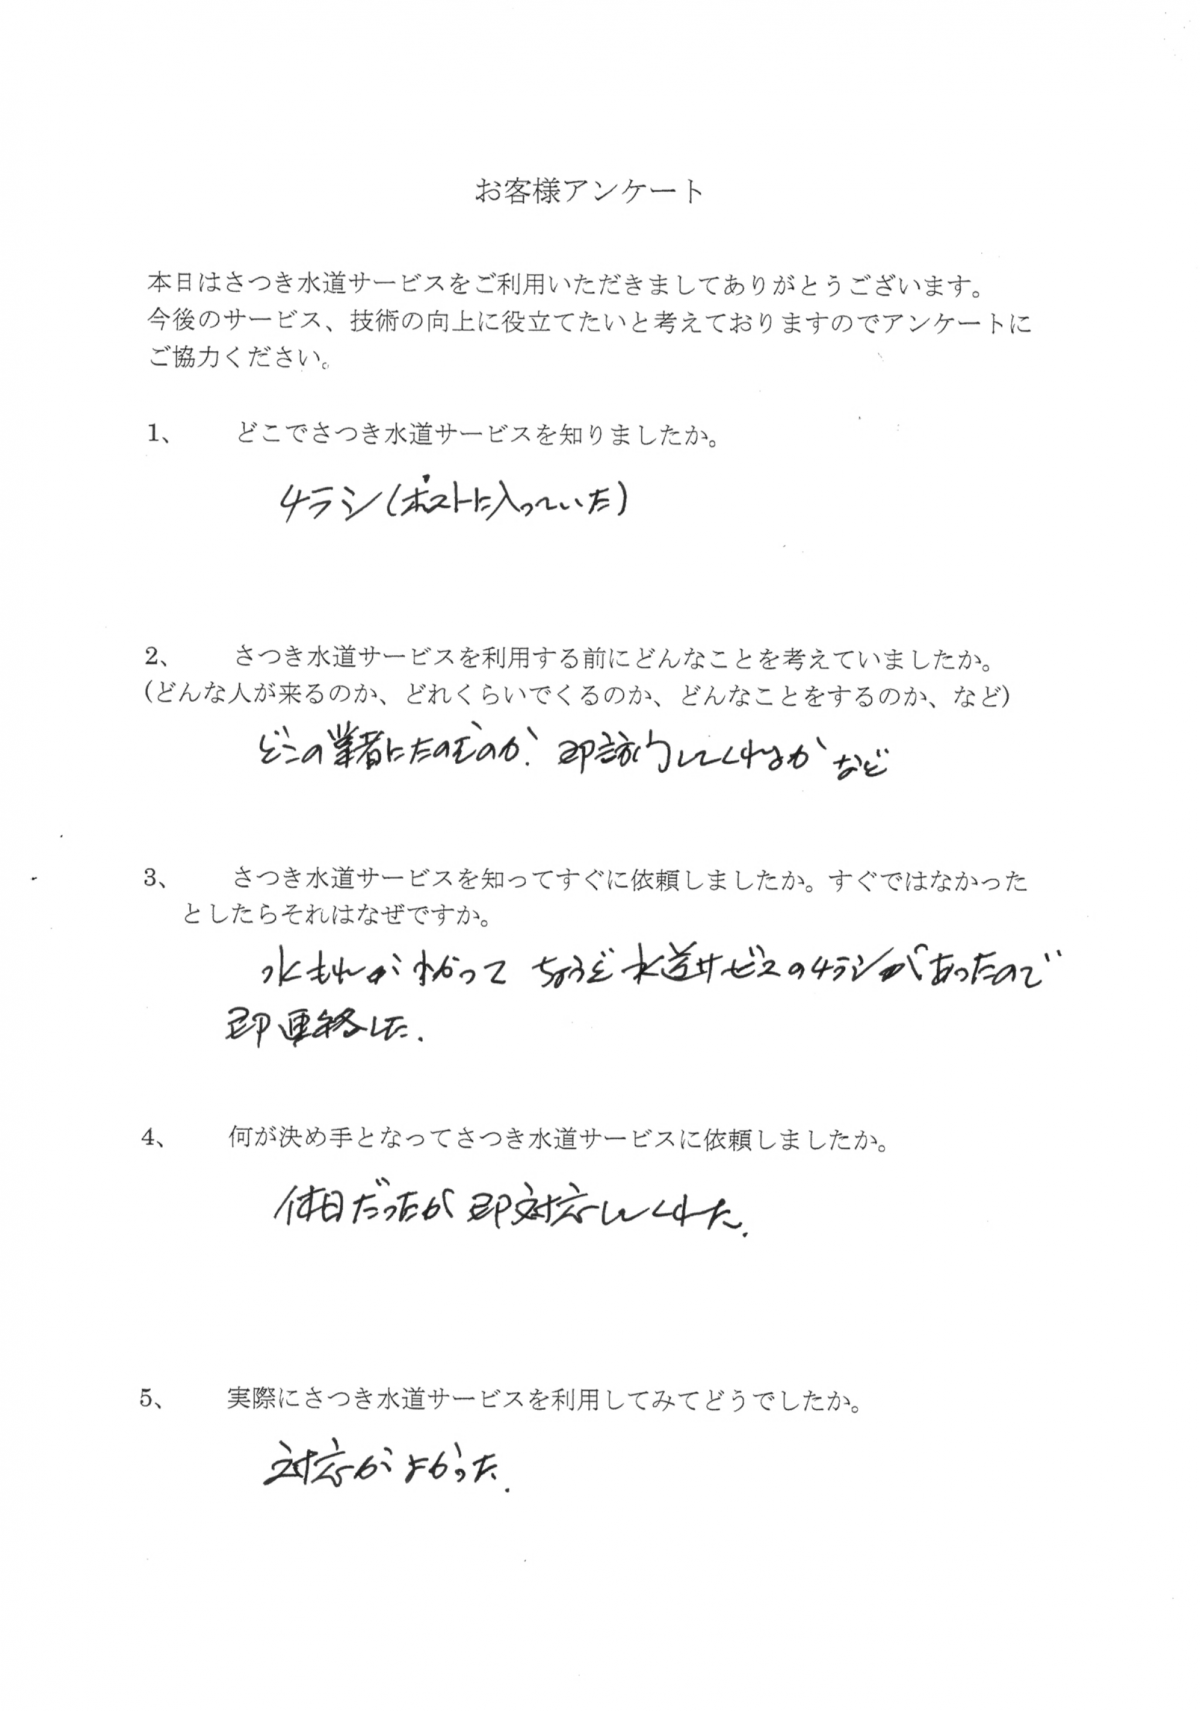 お客様アンケート
本日はさつき水道サービスをご利用いただきましてありがとうございます。
今後のサービス、技術の向上に役立てたいと考えておりますのでアンケートに
ご協力ください。
1、 どこでさつき水道サービスを知りましたか。
チラシ(ポストに入っていた)
2、 さつき水道サービスを利用する前にどんなことを考えていましたか。
(どんな人が来るのか、どれくらいでくるのか、どんなことをするのか、など)
どこの業者にたのむのか、即訪问してくれるか など
3、 さつき水道サービスを知ってすぐに依頼しましたか。すぐではなかった
としたらそれはなぜですか。
水もれがわかって ちょうど水道サービスのチラシがあったので
即連絡した.
4、 何が決め手となってさつき水道サービスに依頼しましたか。
休日だったが 即対応してくれた.
5、 実際にさつき水道サービスを利用してみてどうでしたか。
対応がよかった.